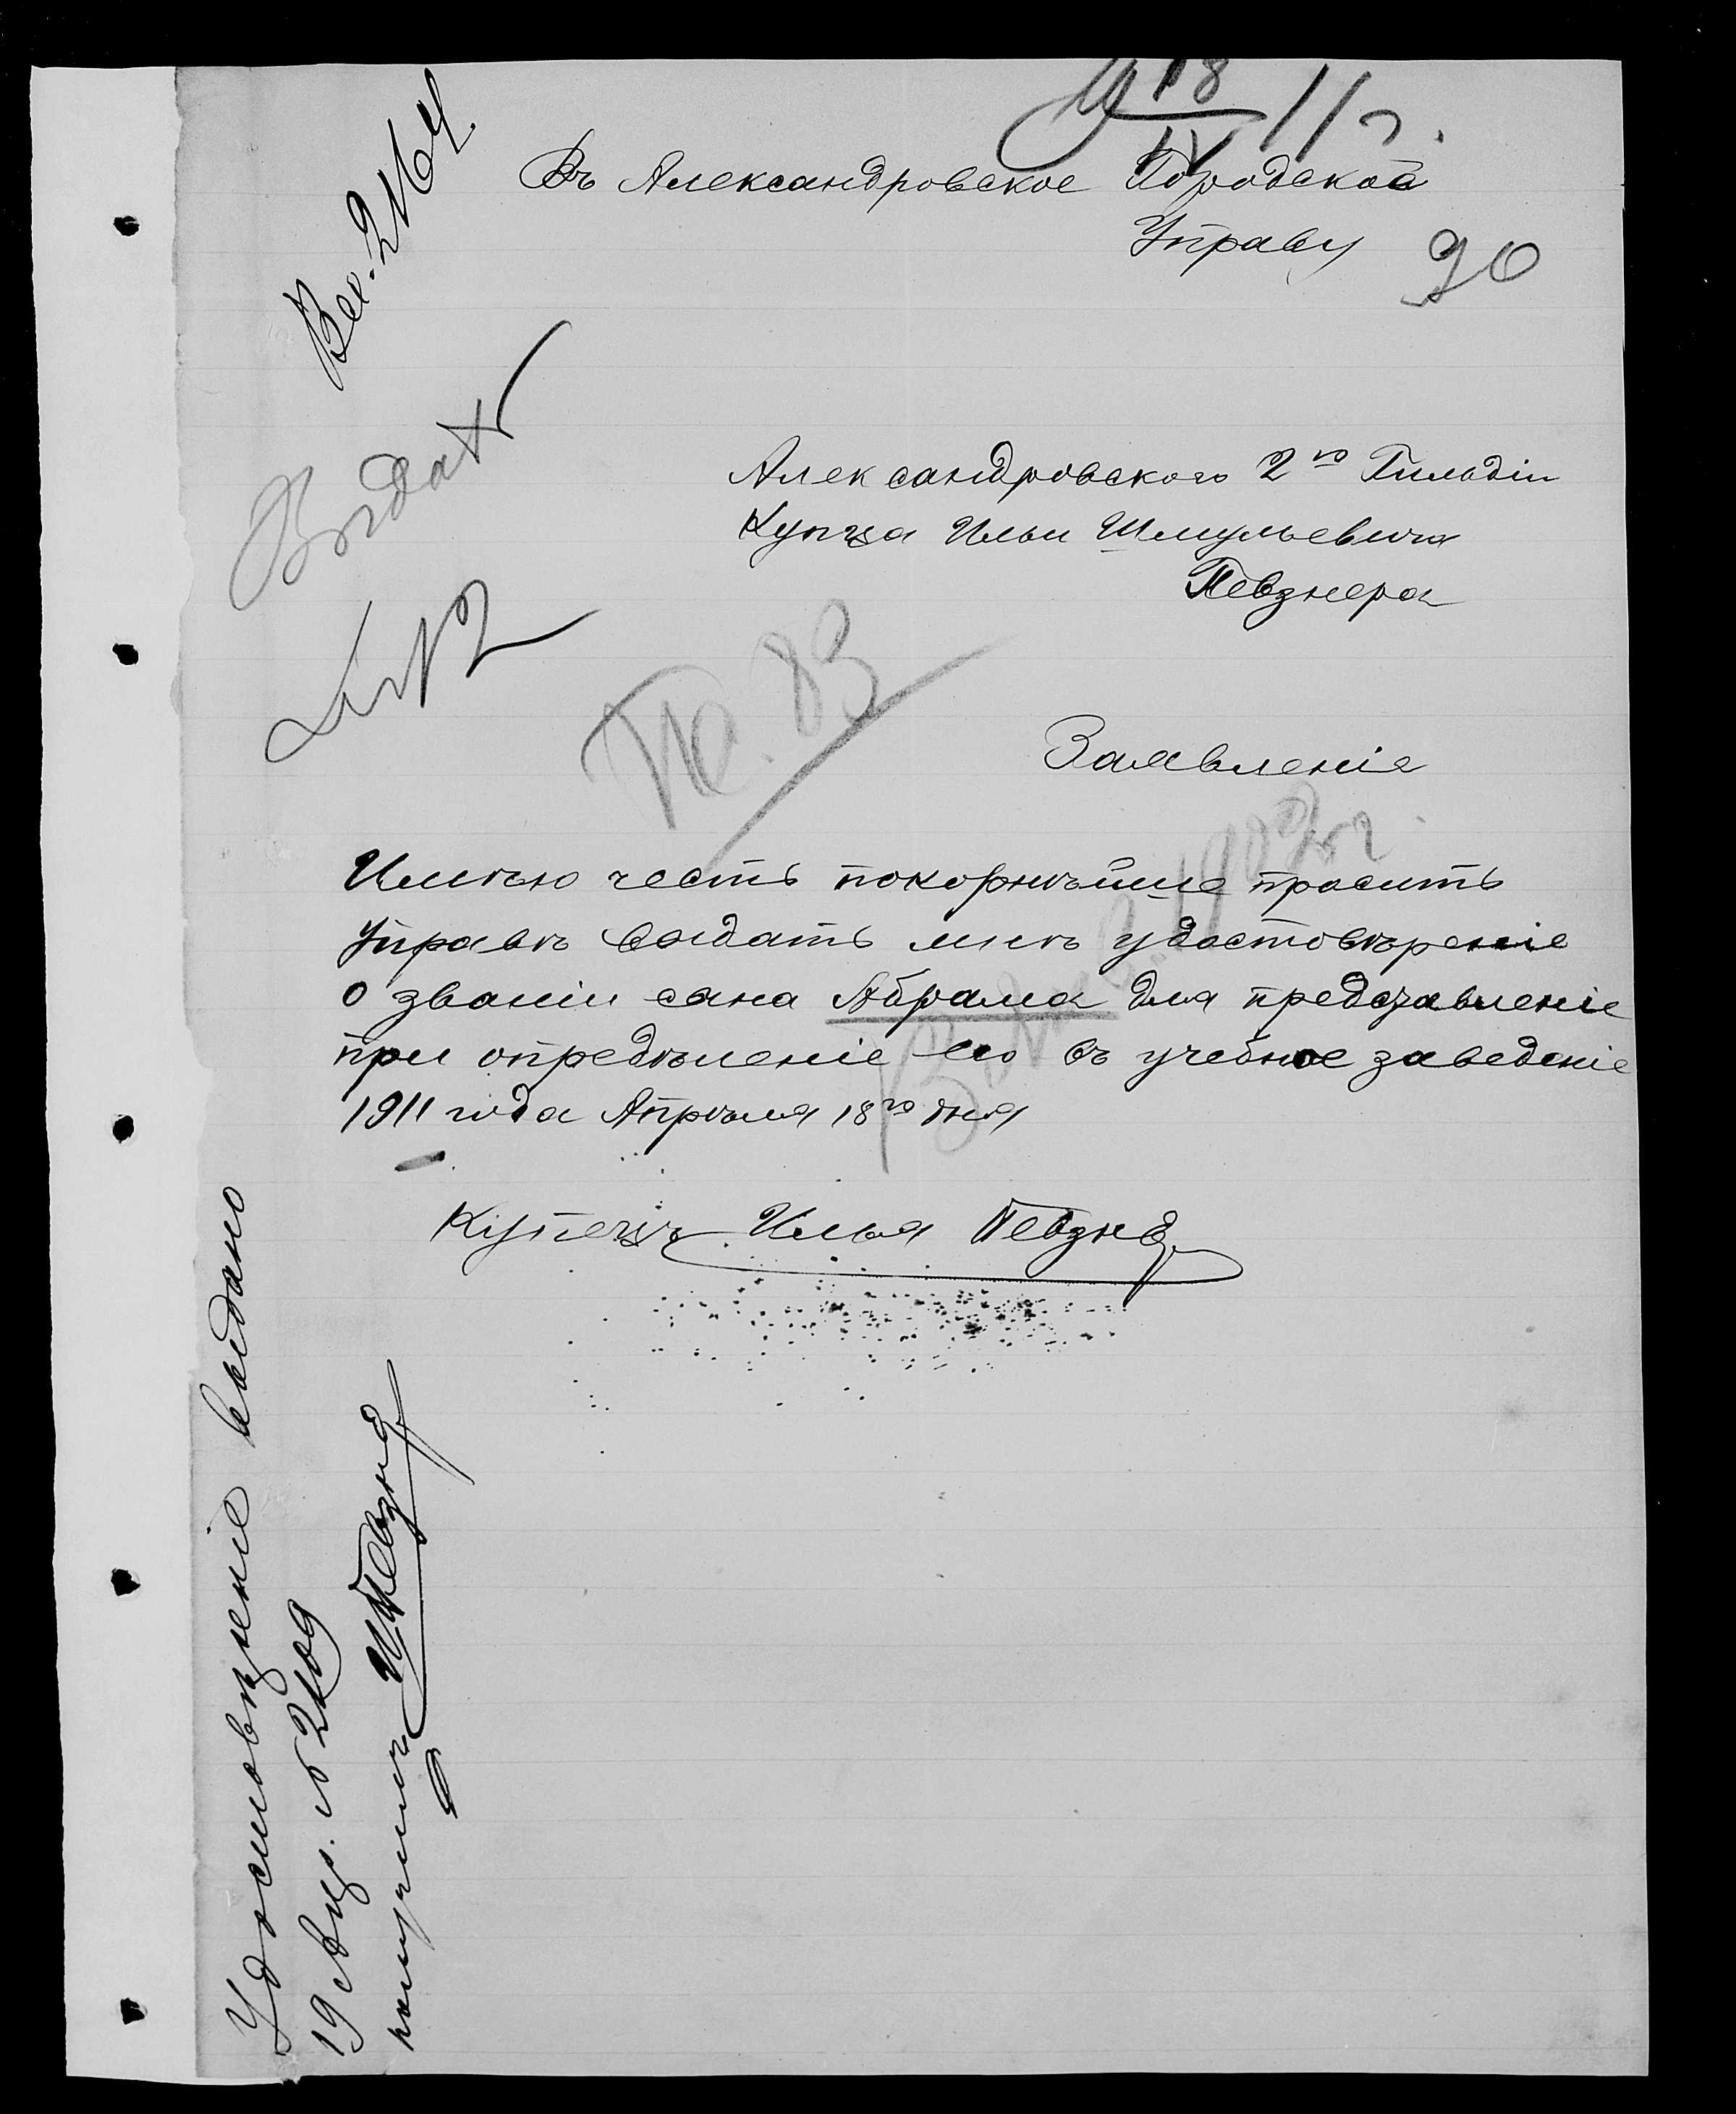 18/IV 11 г.
Въ Александровское Городской
Управу
90
Вх. 2164
Выдать
Александровского 2го Гильдіи
Купца Ильи Шмульевича
Певзнера
Па. 83
Заявленіе
Имѣю честь покорнѣйше просить
Управѣ выдать мнѣ удостовѣреніе
о званіи сына Абрама для представленіе
при опредѣленіе его въ учебное заведеніе
1911 года Апрѣля 18го дня
Купецъ Илья Певзнер
Удостовѣреніе выдано
19 Апр. № 2109
получилъ ИПевзнер